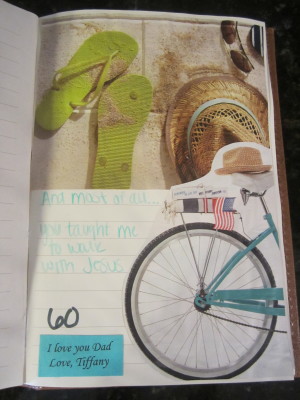 And most of all...
you taught me
to walk
with Jesus
60
I love you Dad
Love, Tiffany